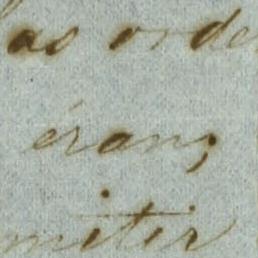 as orde
eran;
mitir